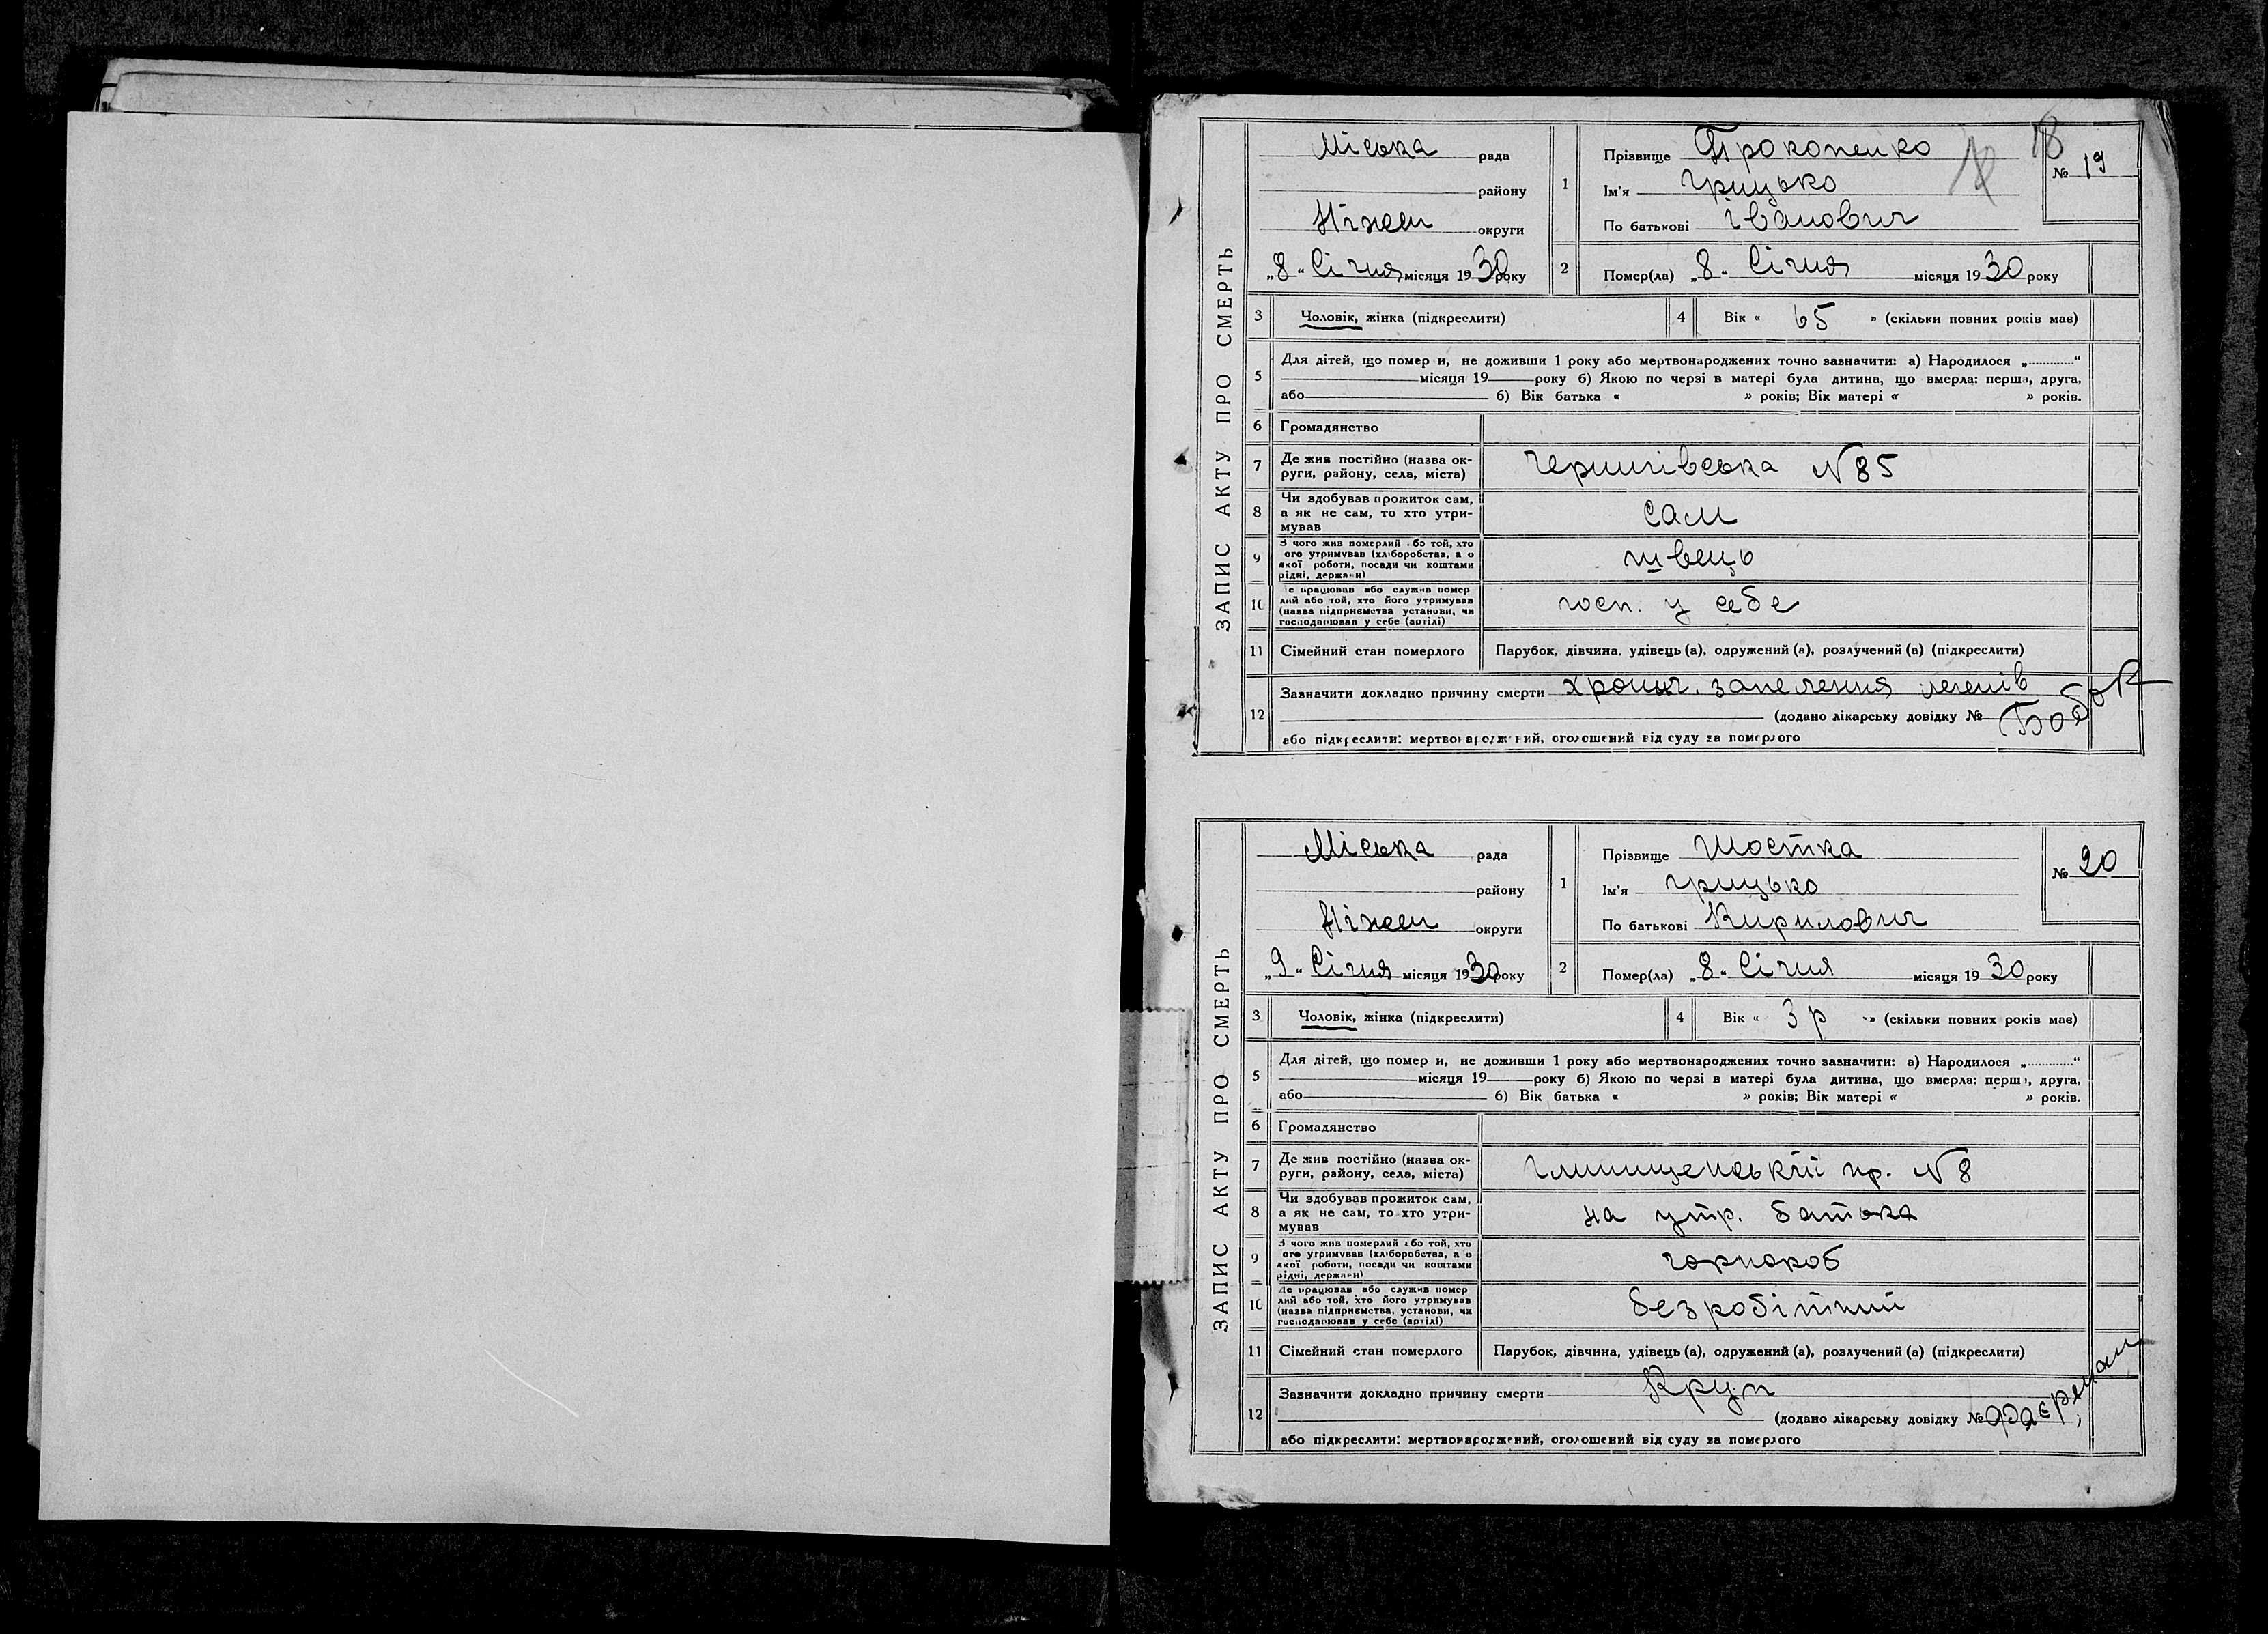 ЗАПИС АКТУ ПРО СМЕРТЬ
Міська рада
району
Ніжен округи
„8“ Січня місяця 1930 року
1
Прізвище Прокопенко
Ім'я Грицько
По батькові Іванович
18
№ 19
2
Помер(ла) „8“ Січня місяця 1930 року
3 Чоловік, жінка (підкреслити)
4 Вік « 65 » (скільки повних років має)
5
Для дітей, що помер и, не доживши 1 року або мертвонароджених точно зазначити: а) Народилося „............“
місяця 19 року б) Якою по черзі в матері була дитина, що вмерла: перша, друга,
або б) Вік батька « » років; Вік матері « » років.
6 Громадянство
7 Де жив постійно (назва ок-
руги, району, села, міста)
Чернигівська N 85
8 Чи здобував прожиток сам,
а як не сам, то хто утри-
мував
Сам
9 З чого жив померлий або той, хто
ого утримував (хліборобства, а о
якої роботи, посади чи коштами
рідні, держави)
швець
10 е працював або служив помер
лий або той, хто його утримував
(назва підприємства установи, чи
господарював у себе (артілі)
госп. у себе
11 Сімейний стан померлого
Парубок, дівчина, удівець (а), одружений (а), розлучений (а) (підкреслити)
12
Зазначити докладно причину смерти хронич. запелення легенів
(додано лікарську довідку № Бобок
або підкреслити: мертвонароджений, оголошений від суду за померлого
ЗАПИС АКТУ ПРО СМЕРТЬ
Міська рада
району
Ніжен округи
„9“ Січня місяця 1930 року
1
Прізвище Шостка
Ім'я Грицько
По батькові Кирилович
№ 20
2
Помер(ла) „8“ Січня місяця 1930 року
3 Чоловік, жінка (підкреслити)
4 Вік « 3 р » (скільки повних років має)
5
Для дітей, що помер и, не доживши 1 року або мертвонароджених точно зазначити: а) Народилося „............“
місяця 19 року б) Якою по черзі в матері була дитина, що вмерла: перша, друга,
або б) Вік батька « » років; Вік матері « » років.
6 Громадянство
7 Де жив постійно (назва ок-
руги, району, села, міста)
Глинищенській пр. N 8
8 Чи здобував прожиток сам,
а як не сам, то хто утри-
мував
на утр. батька
9 З чого жив померлий або той, хто
ого утримував (хліборобства, а о
якої роботи, посади чи коштами
рідні, держави)
чорнороб
10 Де працював або служив помер
лий або той, хто його утримував
(назва підприємства, установи, чи
господарював у себе (артілі)
безробітний
11 Сімейний стан померлого
Парубок, дівчина, удівець (а), одружений (а), розлучений (а) (підкреслити)
12
Зазначити докладно причину смерти Круп
(додано лікарську довідку №
або підкреслити: мертвонароджений, оголошений від суду за померлого